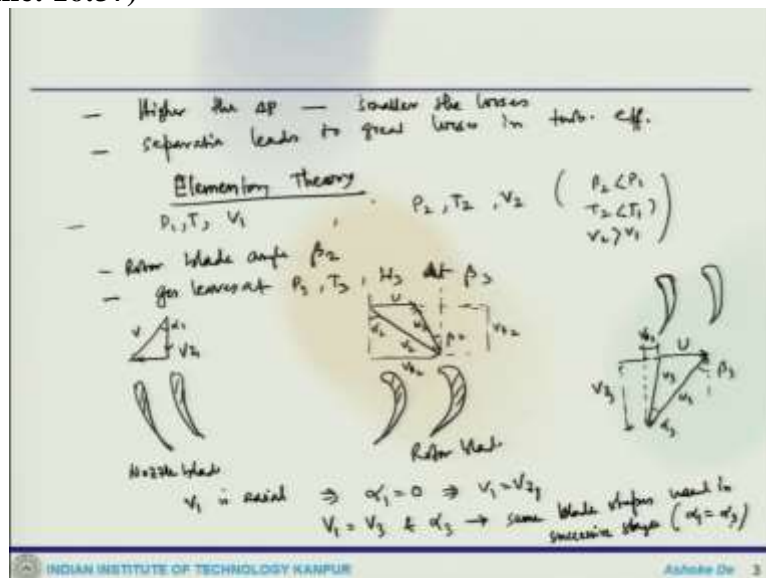 — Higher the ΔP — smaller the losses
— separation leads to great losses in turb. eff.
Elementary Theory
— P₁, T₁ V₁ , P₂, T₂, V₂ ( P₂<P₁
T₂<T₁
V₂>V₁ )
— Rotor blade angle β₂
— gas leaves at P₃, T₃, W₃ at β₃
V α₁
Vz₁
U
α₂ V₂ β₂
U
β₃
Vz₃
α₃
Nozzle blade
Rotor blade
V₁ is axial ⇒ α₁=0 ⇒ V₁=Vz₁
V₁ = V₃ & α₃ → same blade shapes used in
successive stages (α₁=α₃)
INDIAN INSTITUTE OF TECHNOLOGY KANPUR
Ashoke De 3